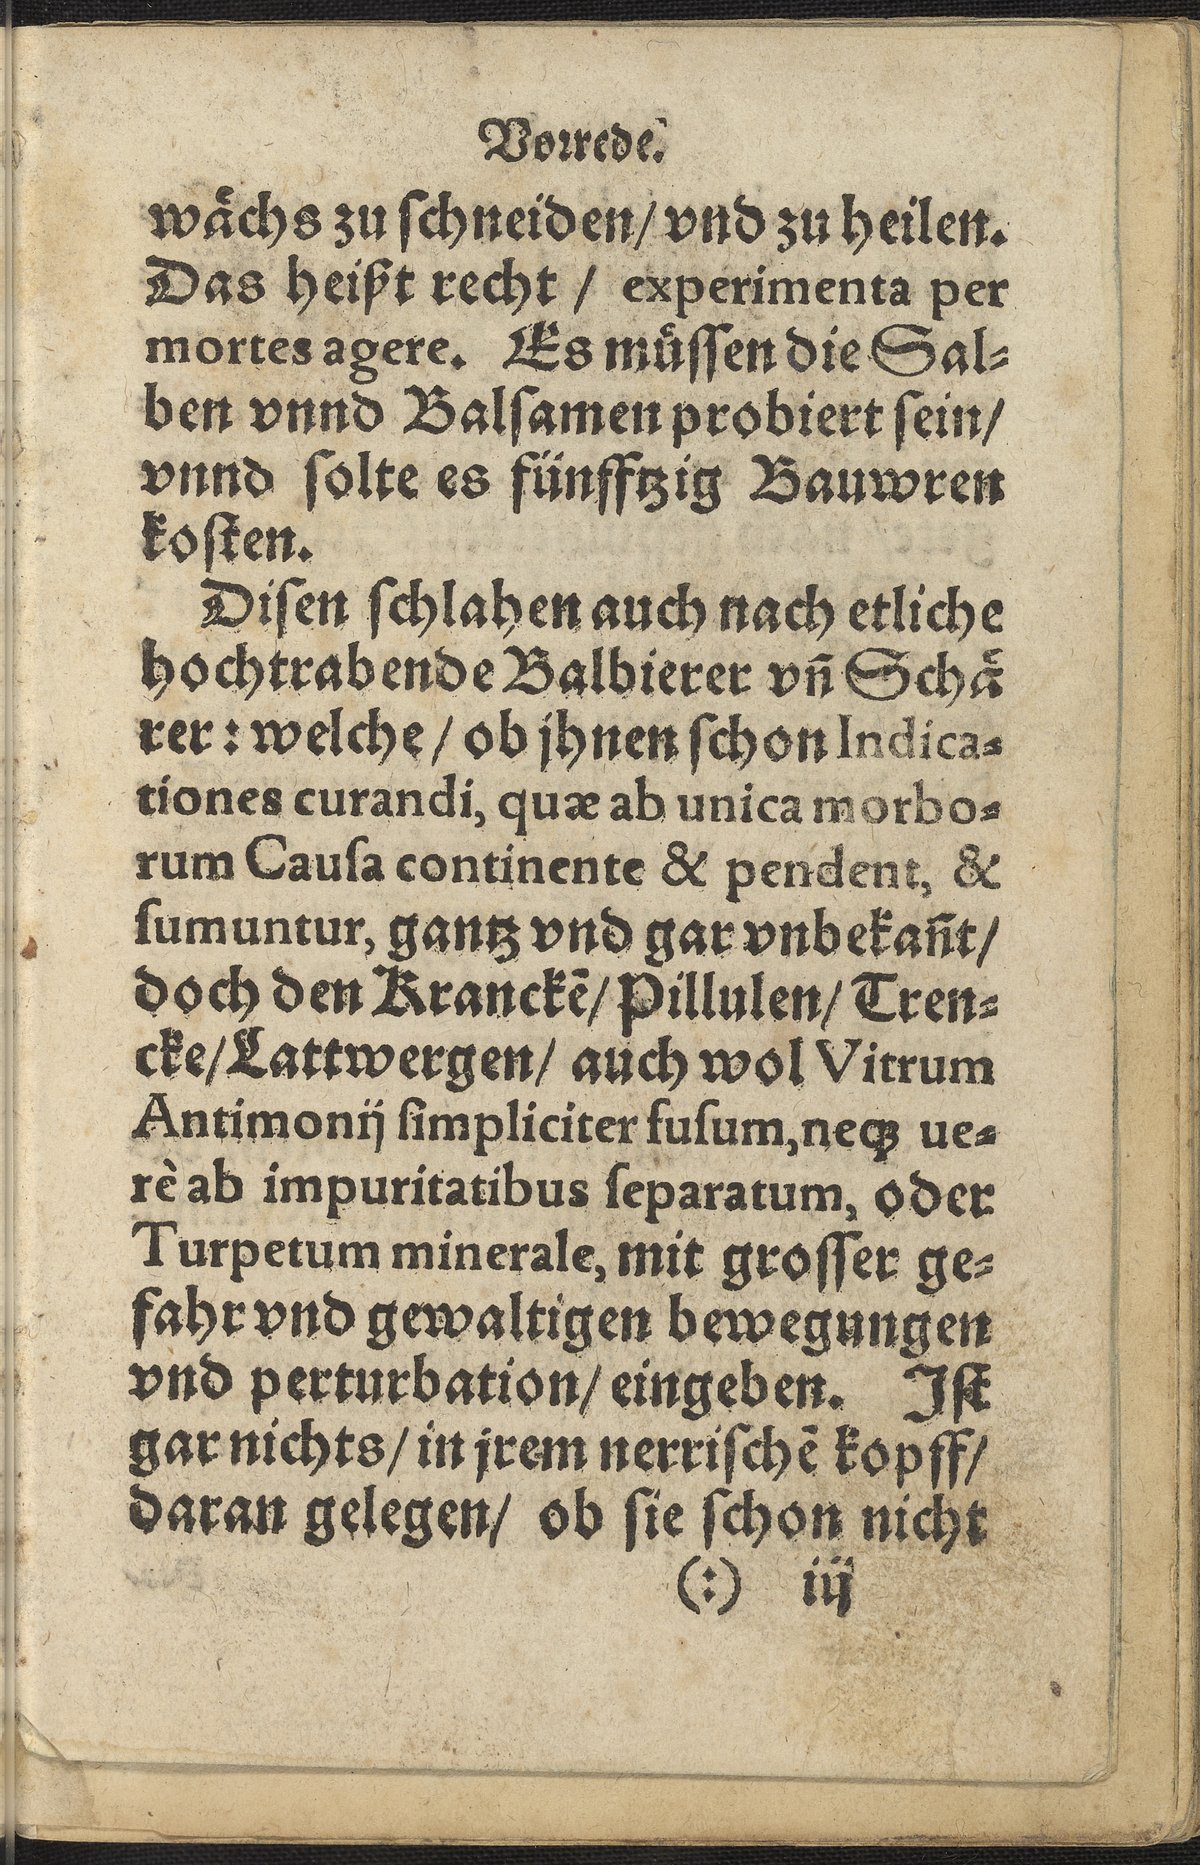 Vorrede.
wächs zu ſchneiden/ vnd zu heilen.
Das heißt recht / experimenta per
mortes agere. Es müſſen die Sal⸗
ben vnnd Balſamen probiert ſein/
vnnd ſolte es fünfftzig Bauwren
koſten.
Diſen ſchlahen auch nach etliche
hochtrabende Balbierer vn̄ Schä
rer: welche / ob jhnen ſchon Indica⸗
tiones curandi, quæ ab unica morbo⸗
rum Cauſa continente & pendent, &
ſumuntur, gantz vnd gar vnbekan̄t/
doch den Kranckē/ Pillulen/ Tren⸗
cke/ Lattwergen/ auch wol Vitrum
Antimonij ſimpliciter fuſum, neqꝫ ue⸗
rè ab impuritatibus ſeparatum, oder
Turpetum minerale, mit groſſer ge⸗
fahr vnd gewaltigen bewegungen
vnd perturbation/ eingeben. Iſt
gar nichts/ in jrem nerriſchē kopff/
daran gelegen/ ob ſie ſchon nicht
(:) iij